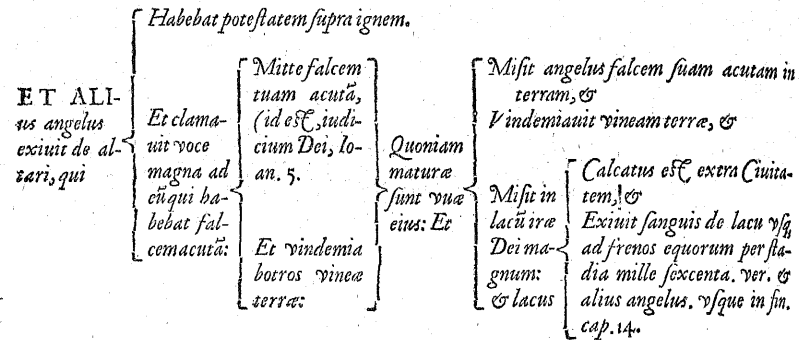 Habebat poteſtatem ſupra ignem.
ET ALI-
us angelus
exiuit de al-
tari, qui
Et clama-
uit voce
magna ad
eũ qui ha-
bebat fal-
cem acutã:
Mitte falcem
tuam acutã,
(id eſt, iudi-
cium Dei, Io-
an. 5.
Et vindemia
botros vineæ
terræ:
Quoniam
maturæ
ſunt vuæ
eius: Et
Miſit angelus falcem ſuam acutam in
terram, &
Vindemiauit vineam terræ, &
Miſit in
lacũ iræ
Dei ma-
gnum:
& lacus
Calcatus eſt extra Ciuita-
tem, &
Exiuit ſanguis de lacu vſq
ad frenos equorum per ſta-
dia mille ſexcenta. ver. &
alius angelus. vſque in fin.
cap. 14.